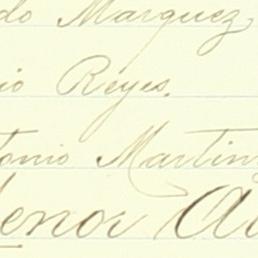 do Marquez
io Reyes.
tonio Martin
enor A